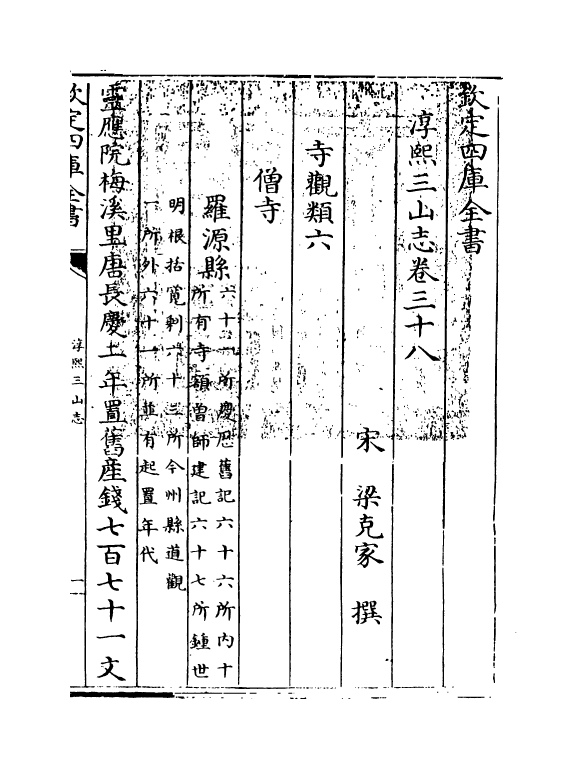 欽定四庫全書
淳熙三山志卷三十八
宋 梁克家 撰
寺觀類六
僧寺
羅源縣
六十一所慶厯舊記六十六所内十
所有寺額曽師建記六十七所鍾世
明根括寛剰六十三所今州縣道觀
一所外六十一所並有起置年代
靈應院梅溪里唐長慶年置舊産錢七百七十一文
欽定四庫全書
淳熙三山志
一